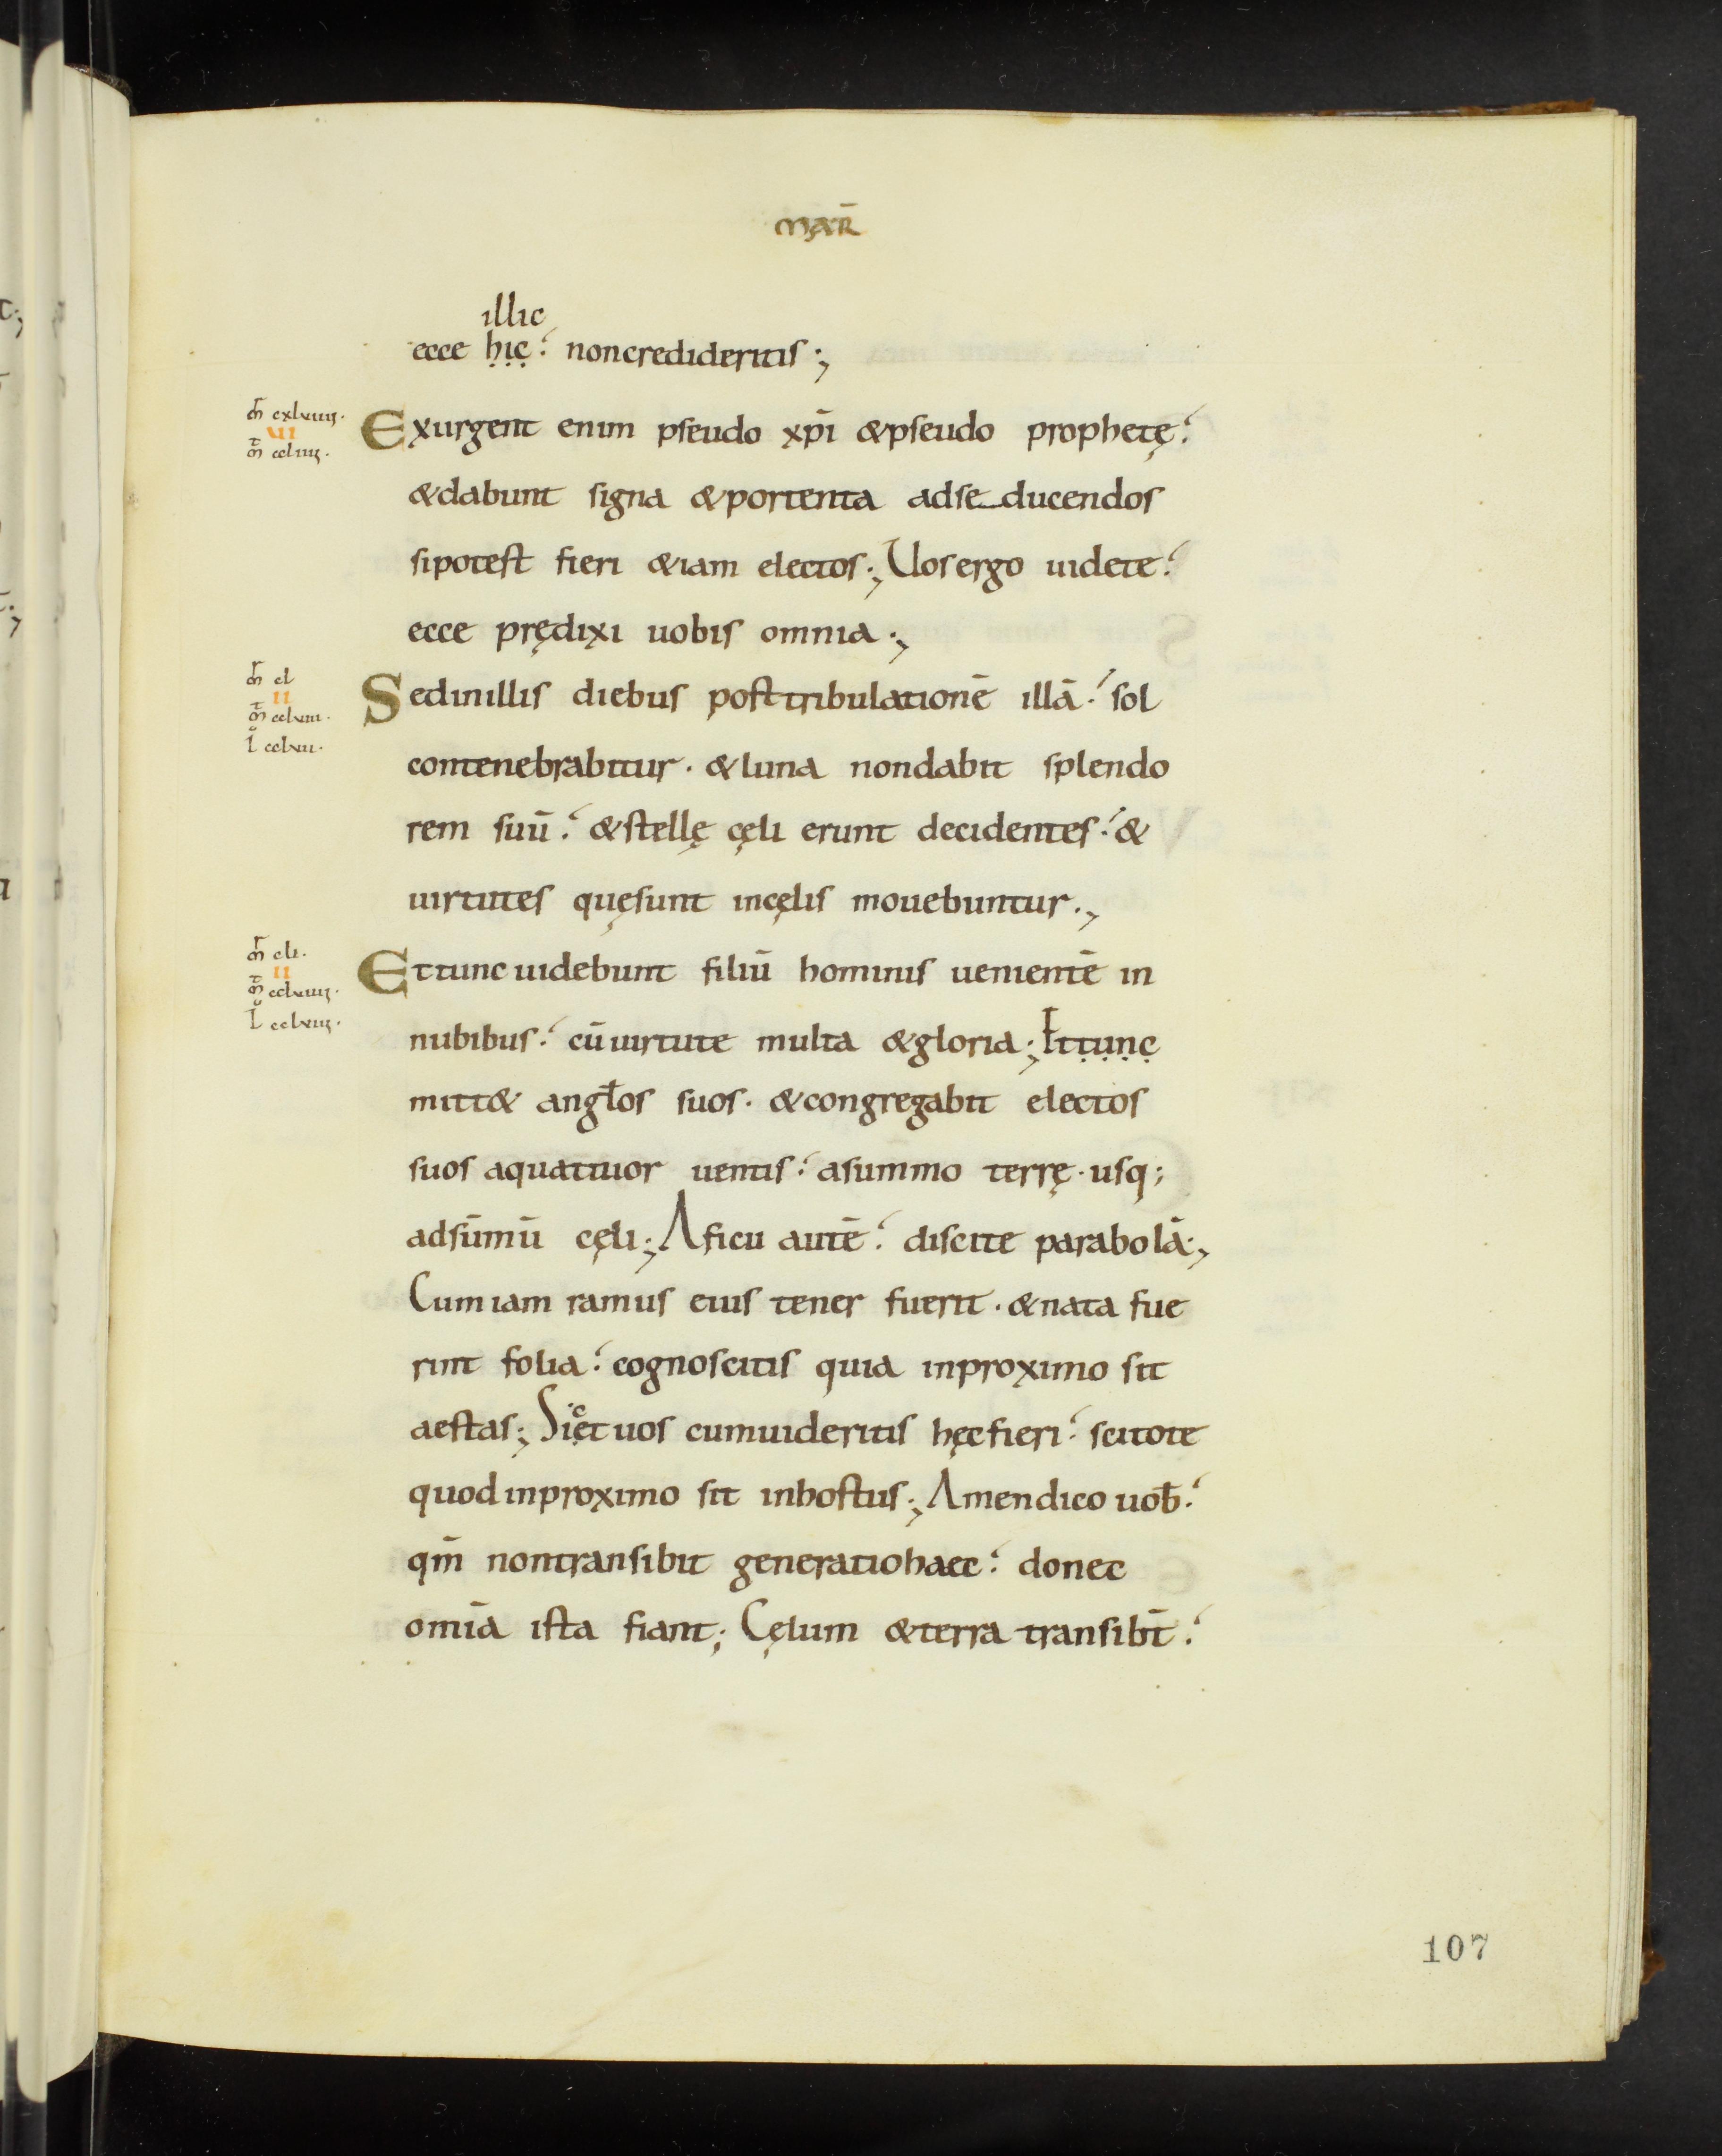 MAR̄
illic
ecce hic: noncredideritis;
m̄r cxlviiii.
VI
m̄t ccliiii.
Exurgent enim pseudo xp̄i &pseudo prophetę:
&dabunt signa &portenta adse_ducendos
sipotest fieri &iam electos; Uosergo uidete:
ecce prędixi uobis omnia;
m̄r cl
II
m̄t cclviii.
l cclvii.
Sedinillis diebus posttribulationē illā: sol
contenebrabitur. &luna nondabit splendo
rem suū: &stellę cęli erunt decidentes: &
uirtutes quęsunt incęlis mouebuntur;
m̄r cli.
II
m̄t cclviiii.
l
Ettunc uidebunt filiū hominis uenientē in
nubibus: cūuirtute multa &gloria; Ettunc
mitt& angl̄os suos. &congregabit electos
suos aquattuor uentis: asummo terrę. usq;
adsūmū cęli; Aficu autē: discite parabolā;
Cumiam ramus eius tener fuerit. &nata fue
rint folia: cognoscitis quia inproximo sit
aestas; Sicet uos cumuideritis hęcfieri: scitote
quodinproximo sit inhostiis; Amendico uob̄:
qm̄ nontransibit generatiohaec: donec
omīa ista fiant; Cęlum &terra transibt̄:
107